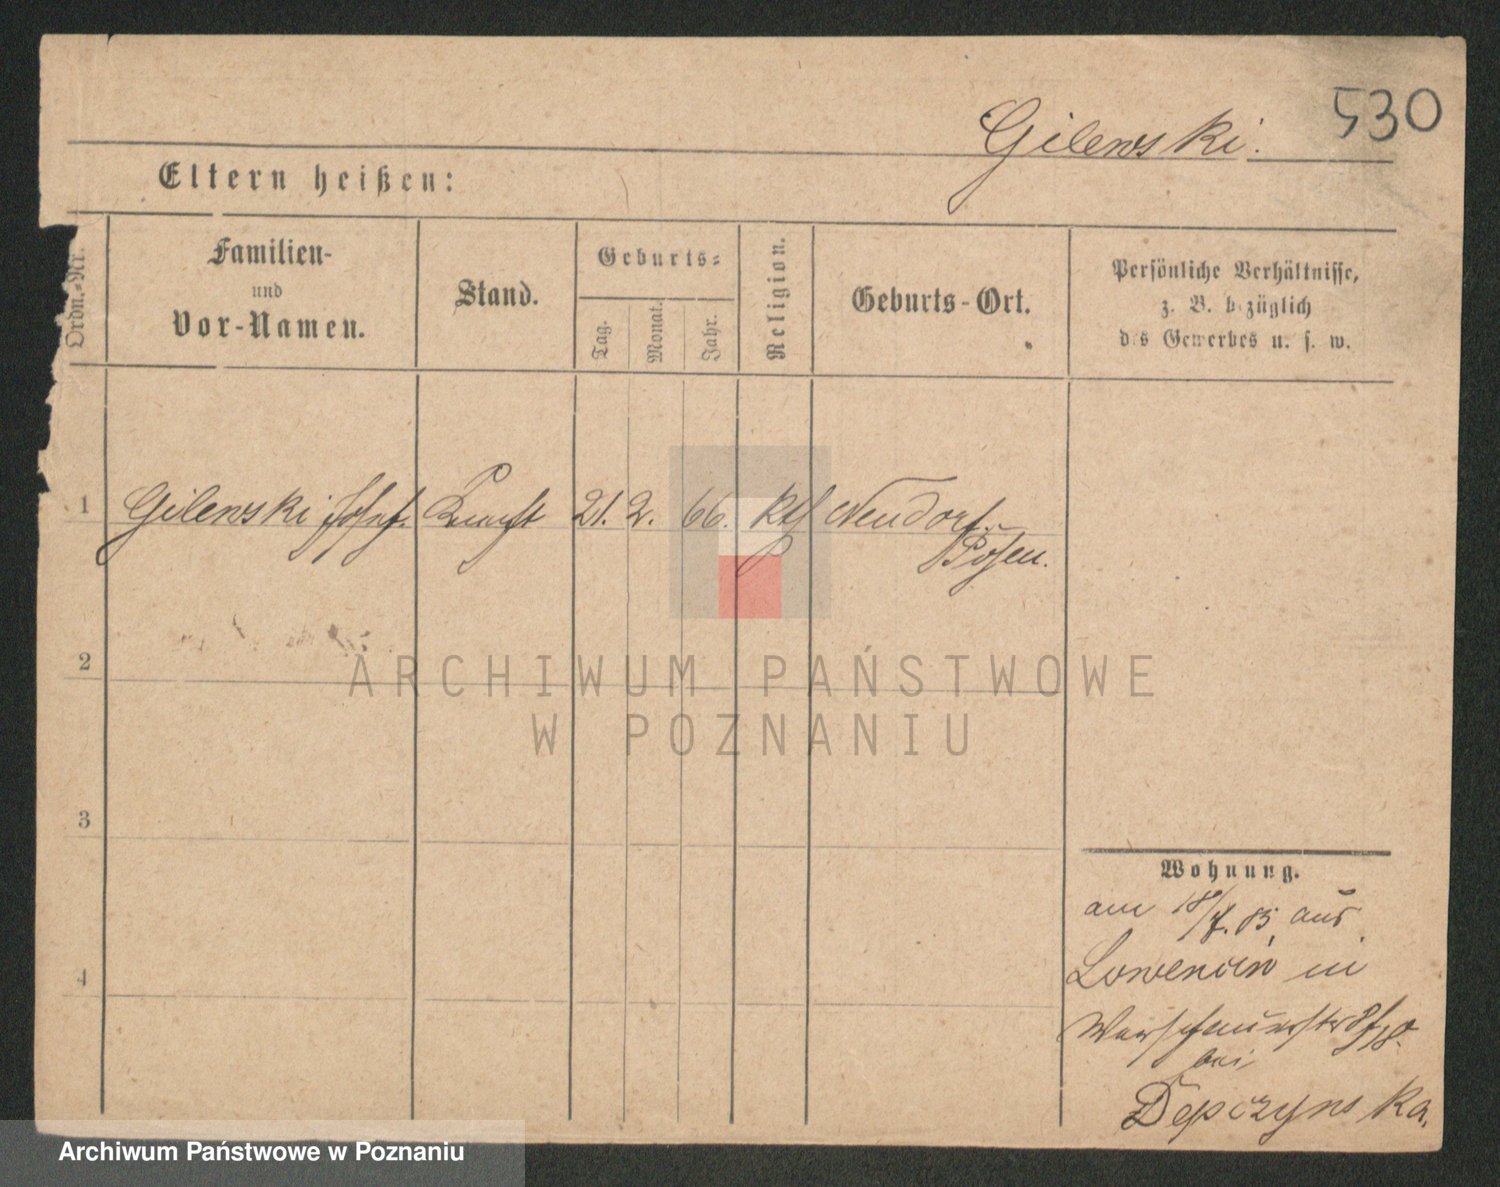 530
Gilewski.
Eltern heißen:
Ordn.-Nr.
Familien-
und
Vor-Namen.
Stand.
Geburts-
Tag.
Monat.
Jahr.
Religion.
Geburts-Ort.
Persönliche Verhältnisse,
z. B. bezüglich
des Gewerbes u. s. w.
1 Gilewski Josef. Knecht 21. 2. 66. kth Neudorf
Posen.
2
3
4
Wohnung.
am 18/7. 85, aus
Lowencin in
bei
Depczynska.
ARCHIWUM PAŃSTWOWE
W POZNANIU
Archiwum Państwowe w Poznaniu